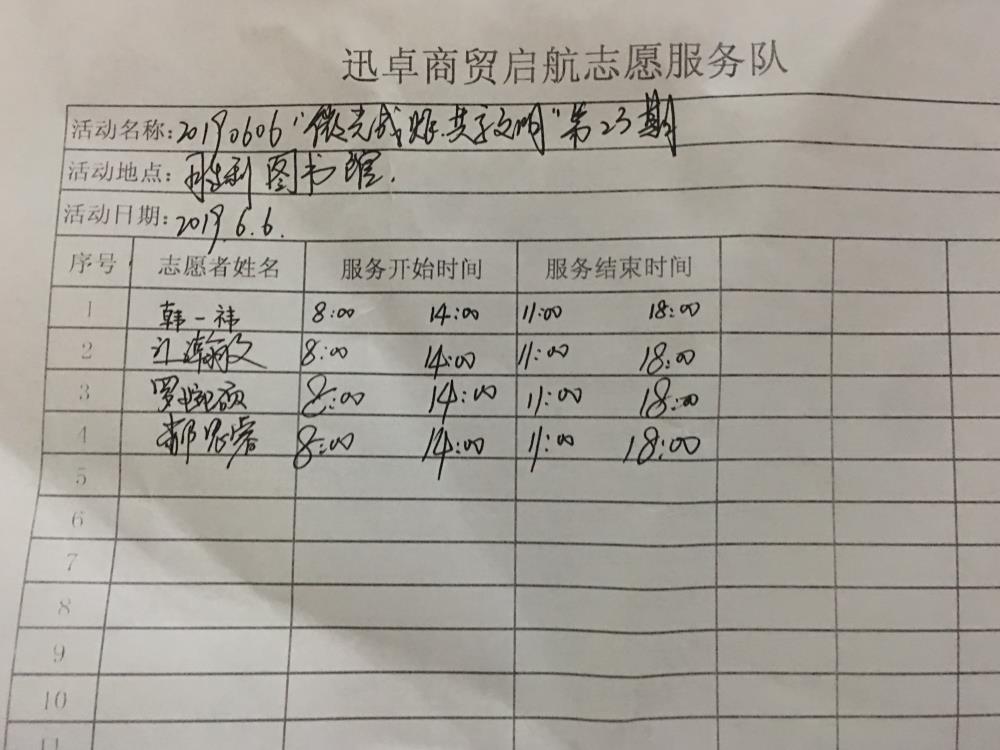 迅卓商贸启航志愿服务队
活动名称:20190606"微光成炬.共享文明"第23期
活动地点:胜利图书馆.
活动日期:2019.6.6.
序号 志愿者姓名 服务开始时间 服务结束时间
1 韩一祎 8:00 14:00 11:00 18:00
2 江瀚文 8:00 14:00 11:00 18:00
3 罗 8:00 14:00 11:00 18:00
4 郝思睿 8:00 14:00 11:00 18:00
5
6
7
8
9
10
11